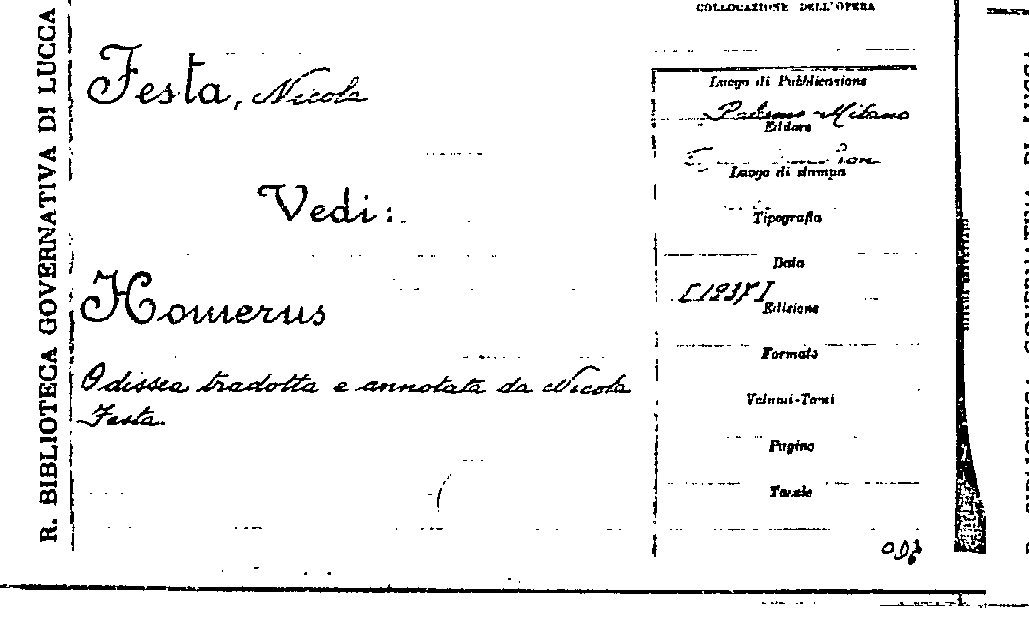 R. BIBLIOTECA GOVERNATIVA DI LUCCA
COLLOCAZIONE DELL'OPERA
Festa, Nicola
Vedi:
Homerus
Odissea tradotta e annotata da Nicola
Festa.
Luogo di Pubblicazione
Palermo-Milano
Editore
Luogo di stampa
Tipografia
Data
[1937]
Edizione
Formato
Volumi-Tomi
Pagine
Tavole